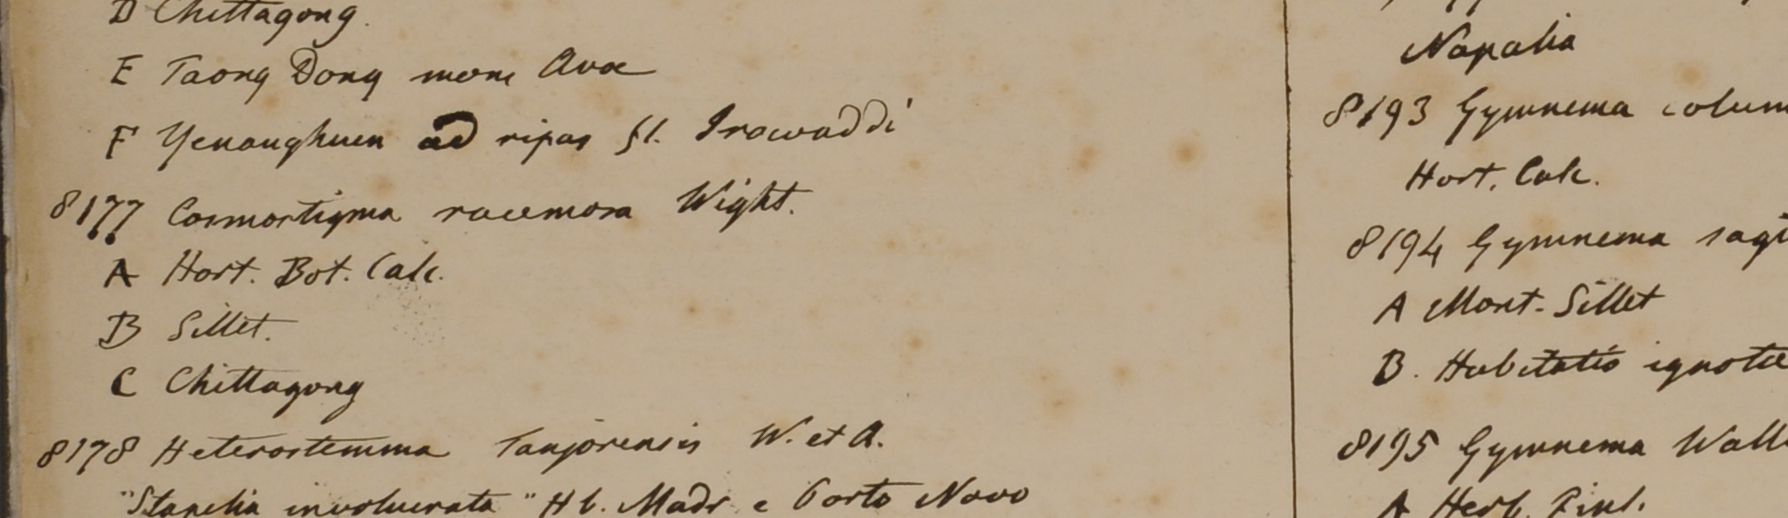 D Chittagong.
E Taong Dong mons Avae
F Yenanghuen ad ripas fl. Irawaddi
8177 Cosmostigma racemosa Wight.
A Hort. Bot. Calc.
B Sillet.
C Chittagong
8178 Heterostemma Tanjorensis W. et A.
"Stapelia involucrata" Hb. Madr. e Porto Novo
Napalia
8193 Gymnema colum
Hort. Calc.
8194 Gymnema sagi
A Mont. Sillet
B. Habitatio ignota
8195 Gymnema Wall
A Herb. Finl.